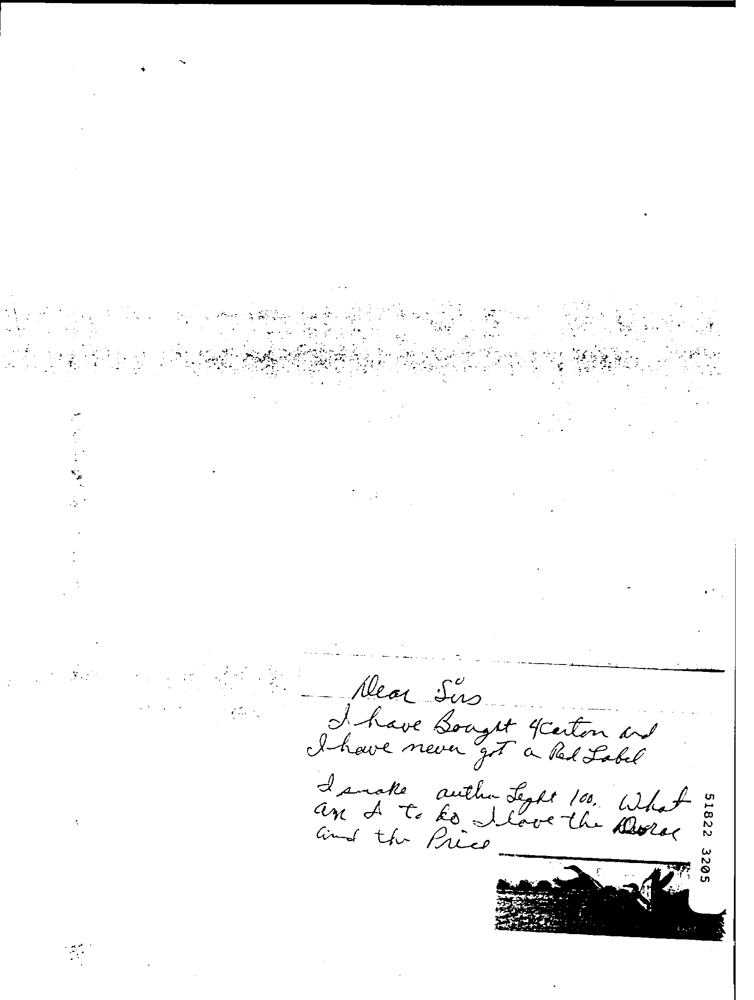 Dear Sirs
I have Bought 4 Carton and
I have never got a Red Label
I smoke Light 100. What
am I to do I love the
and the Price
51822 3205